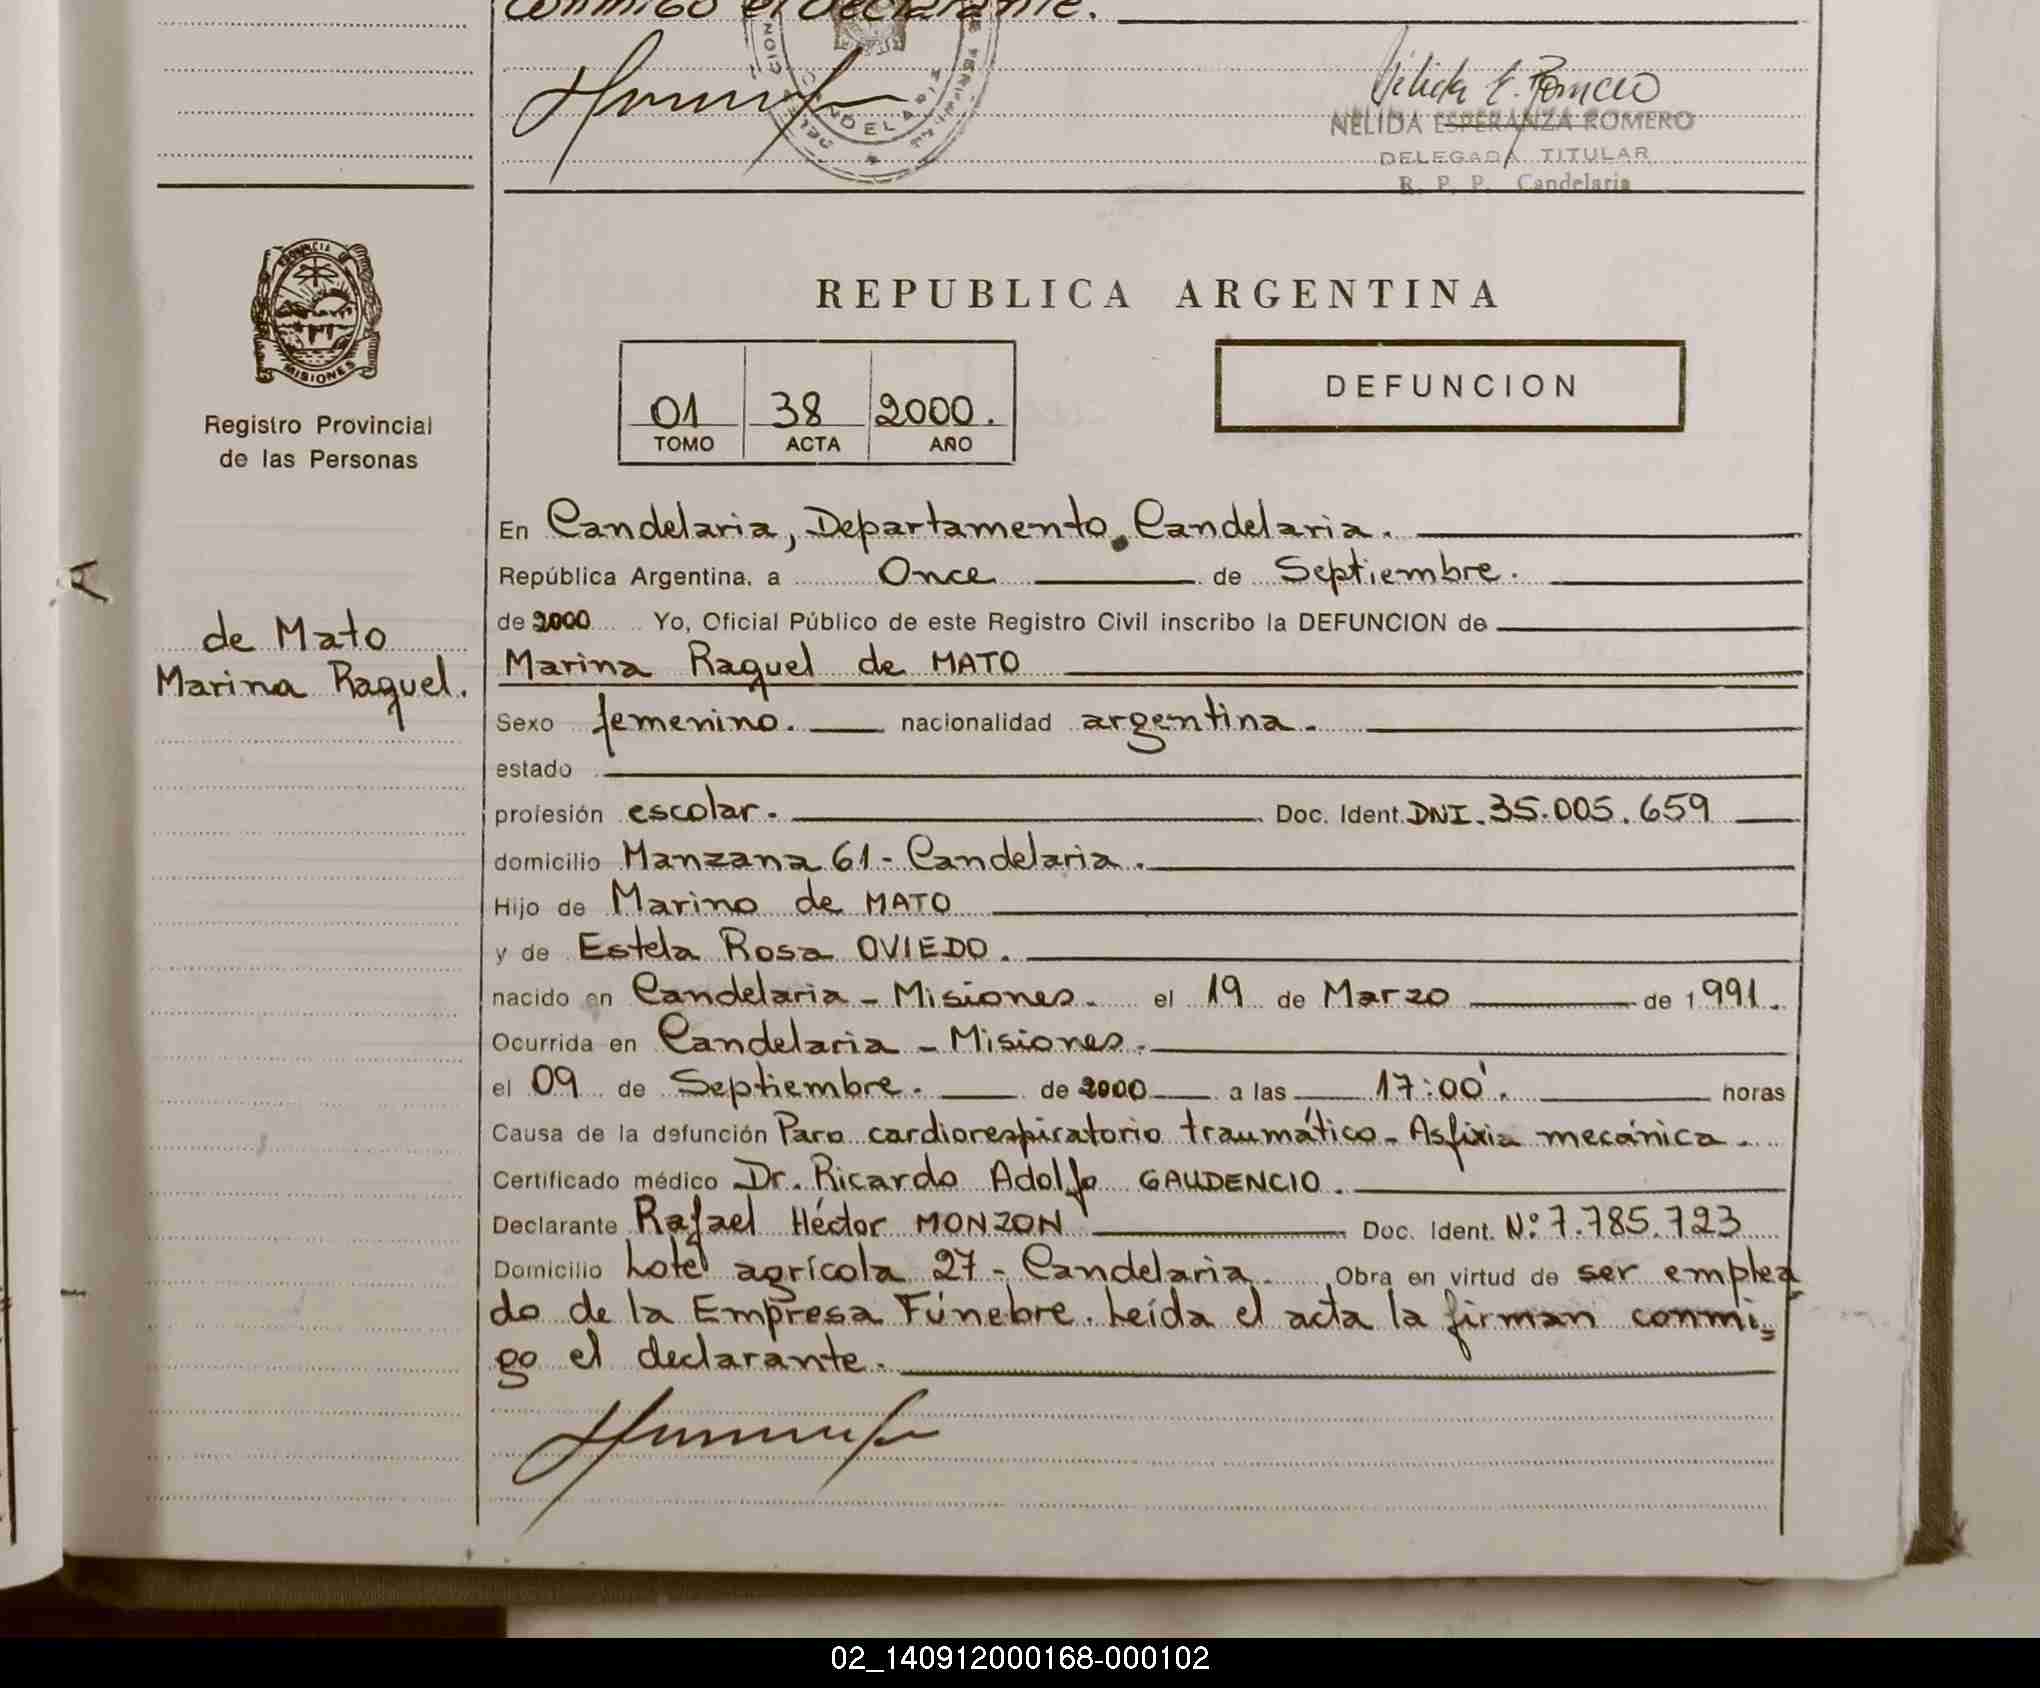 conmigo el declarante.
CANDELARIA
Nélida E. Romero
NELIDA ESPERANZA ROMERO
DELEGADA TITULAR
R. P. P. Candelaria
PROVINCIA DE
MISIONES
Registro Provincial
de las Personas
REPUBLICA ARGENTINA
01 38 2000.
TOMO ACTA AÑO
DEFUNCION
de Mato
Marina Raquel.
En Candelaria, Departamento Candelaria.
República Argentina, a Once de Septiembre.
de 2000 Yo, Oficial Público de este Registro Civil inscribo la DEFUNCION de
Marina Raquel de MATO
Sexo femenino. nacionalidad argentina.
estado
profesión escolar. Doc. Ident. DNI. 35.005.659
domicilio Manzana 61 - Candelaria.
Hijo de Marino de MATO
y de Estela Rosa OVIEDO.
nacido en Candelaria - Misiones. el 19 de Marzo de 1991.
Ocurrida en Candelaria - Misiones.
el 09 de Septiembre. de 2000 a las 17:00'. horas
Causa de la defunción Paro cardiorespiratorio traumático - Asfixia mecánica.
Certificado médico Dr. Ricardo Adolfo GAUDENCIO.
Declarante Rafael Héctor MONZON Doc. Ident. Nº 7.785.723
Domicilio Lote agrícola 27 - Candelaria. Obra en virtud de ser emplea
do de la Empresa Fúnebre. Leída el acta la firman conmi=
go el declarante.
02_140912000168-000102